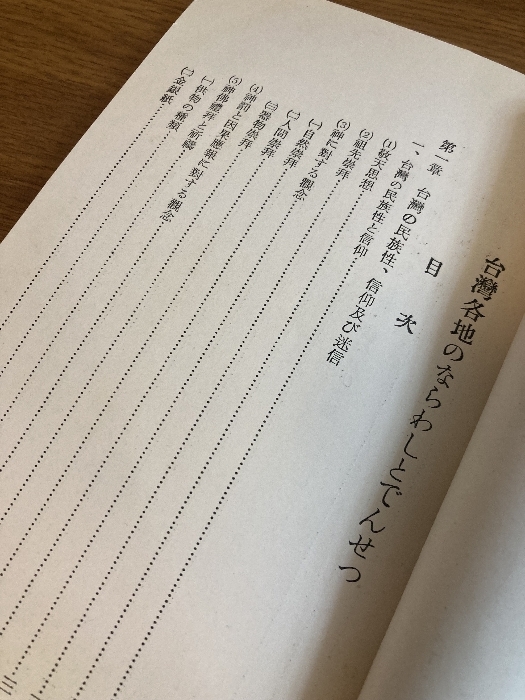 台灣各地のならわしとでんせつ
目次
第一章 台灣の民族性、信仰及び迷信
一、台灣の民族性と信仰
(1) 敬天思想
(2) 祖先崇拜
(3) 神に對する觀念
(一) 自然崇拜
(二) 人間崇拜
(三) 器物崇拜
(4) 神罰と因果應報に對する觀念
(5) 神佛禮拜と祈禱
(一) 供物の種類
(二) 金銀紙